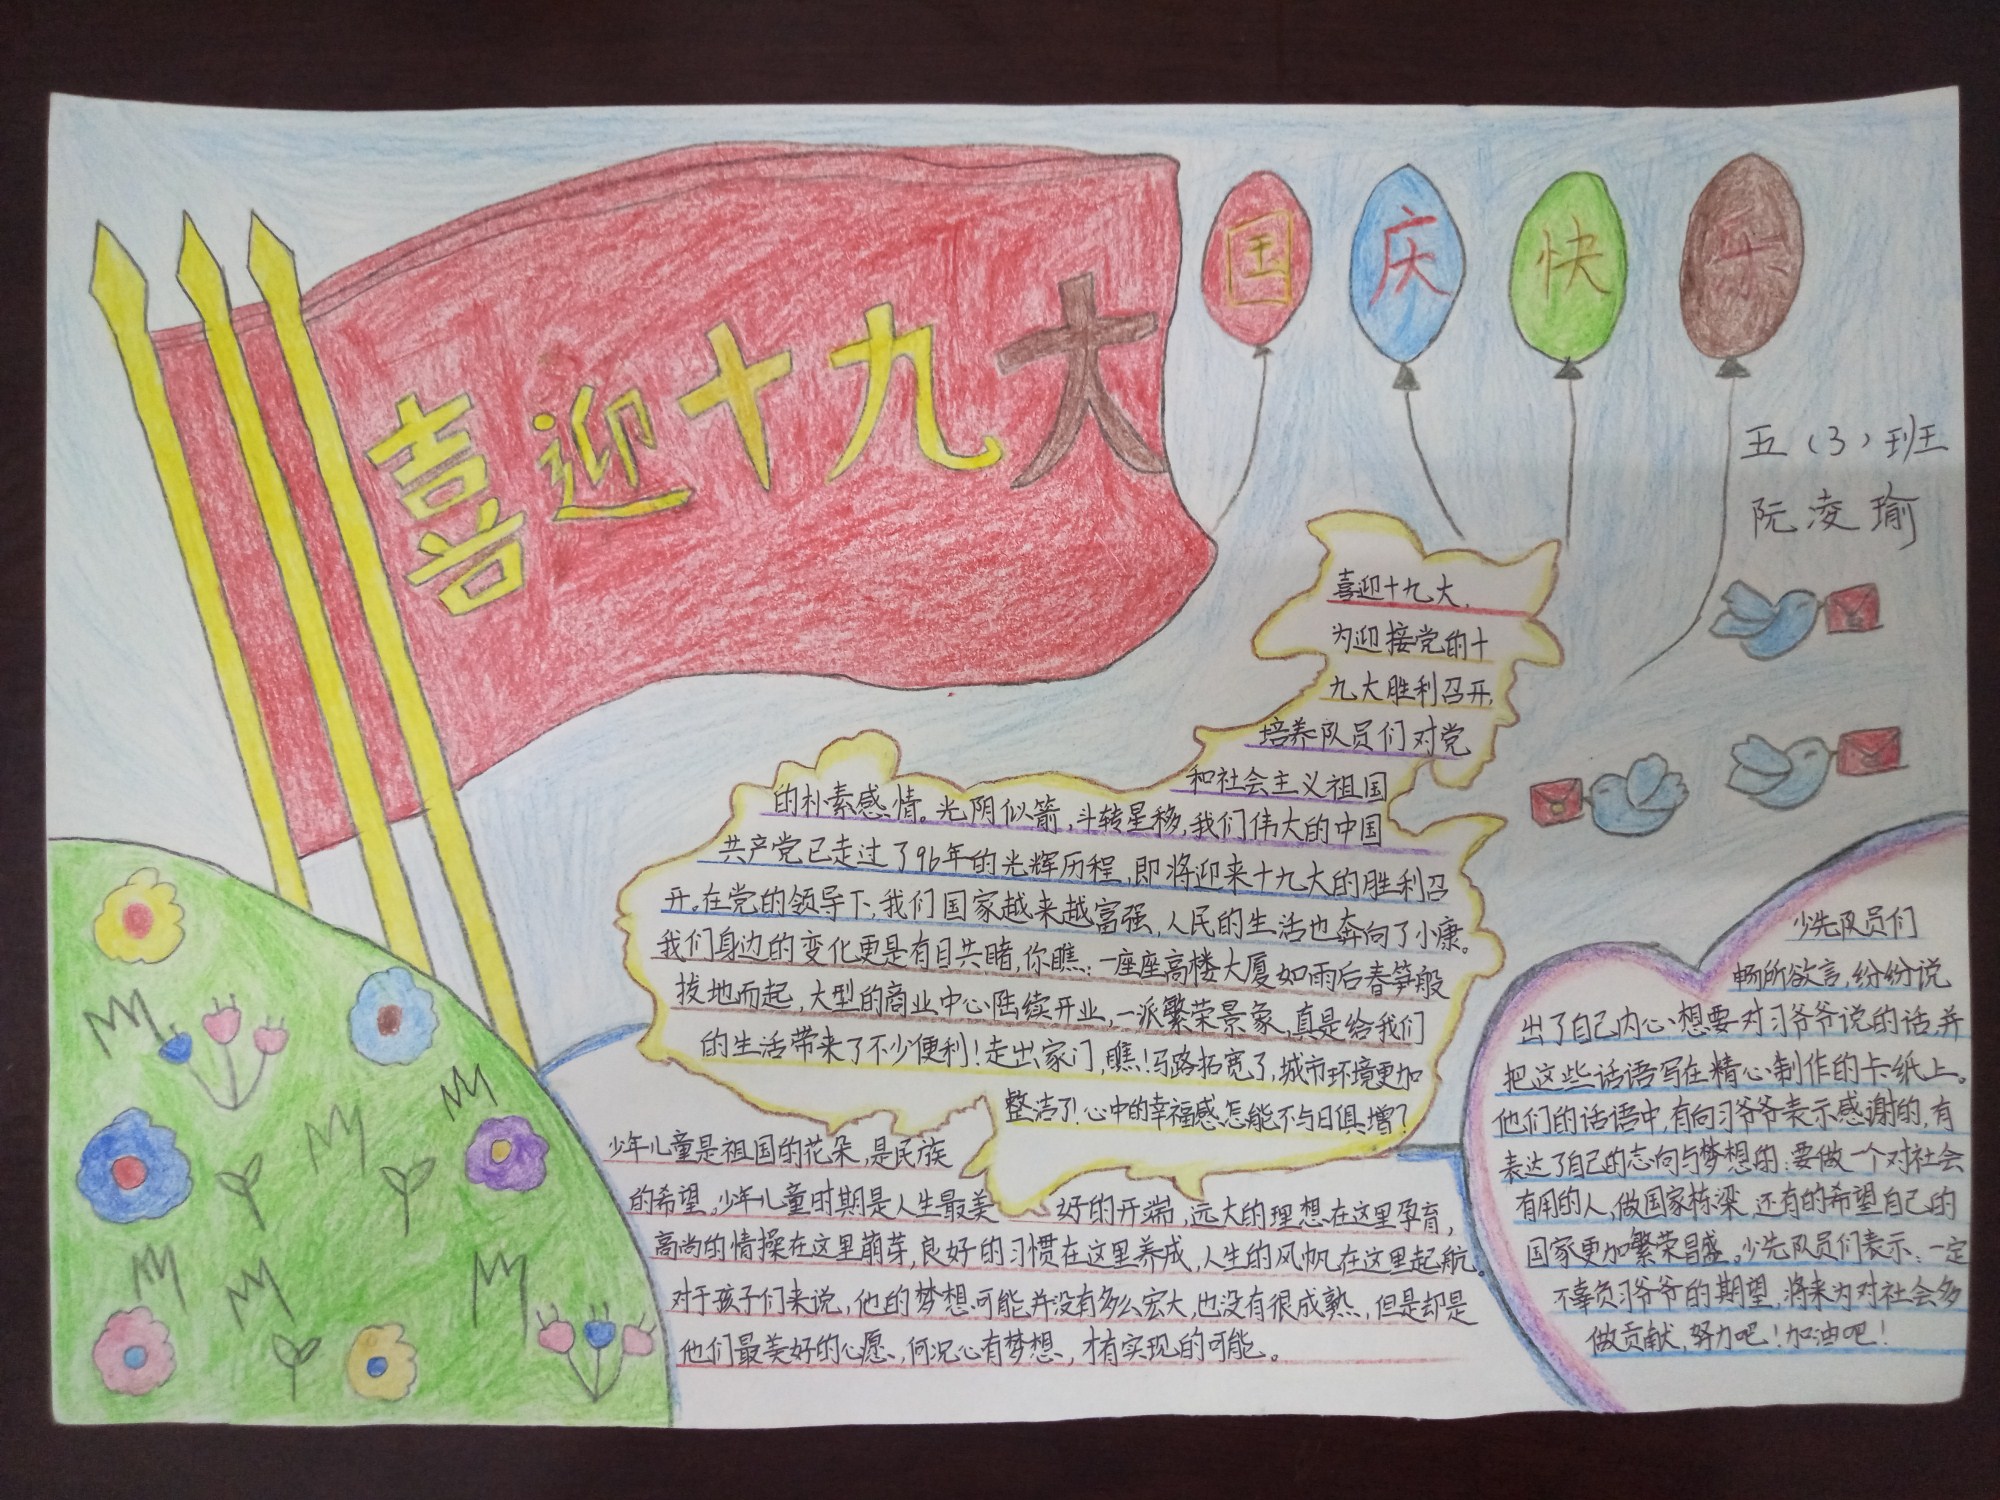 喜迎十九大
国庆快乐
五（3）班
阮凌瑜
喜迎十九大，
为迎接党的十
九大胜利召开，
培养队员们对党
和社会主义祖国
的朴素感情。光阴似箭，斗转星移，我们伟大的中国
共产党已走过了96年的光辉历程，即将迎来十九大的胜利召
开。在党的领导下，我们国家越来越富强，人民的生活也奔向了小康。
我们身边的变化更是有目共睹，你瞧：一座座高楼大厦如雨后春笋般
拔地而起，大型的商业中心陆续开业，一派繁荣景象，真是给我们
的生活带来了不少便利！走出家门，瞧！马路拓宽了，城市环境更加
整洁了！心中的幸福感怎能不与日俱增？
少年儿童是祖国的花朵，是民族
的希望。少年儿童时期是人生最美好的开端，远大的理想在这里孕育，
高尚的情操在这里萌芽，良好的习惯在这里养成，人生的风帆在这里起航。
对于孩子们来说，他的梦想可能并没有多么宏大，也没有很成熟，但是却是
他们最美好的心愿，何况心有梦想，才有实现的可能。
少先队员们
畅所欲言，纷纷说
出了自己内心想要对习爷爷说的话，并
把这些话语写在精心制作的卡纸上。
他们的话语中，有向习爷爷表示感谢的，有
表达了自己的志向与梦想的：要做一个对社会
有用的人，做国家栋梁，还有的希望自己的
国家更加繁荣昌盛。少先队员们表示：一定
不辜负习爷爷的期望，将来为对社会多
做贡献，努力吧！加油吧！